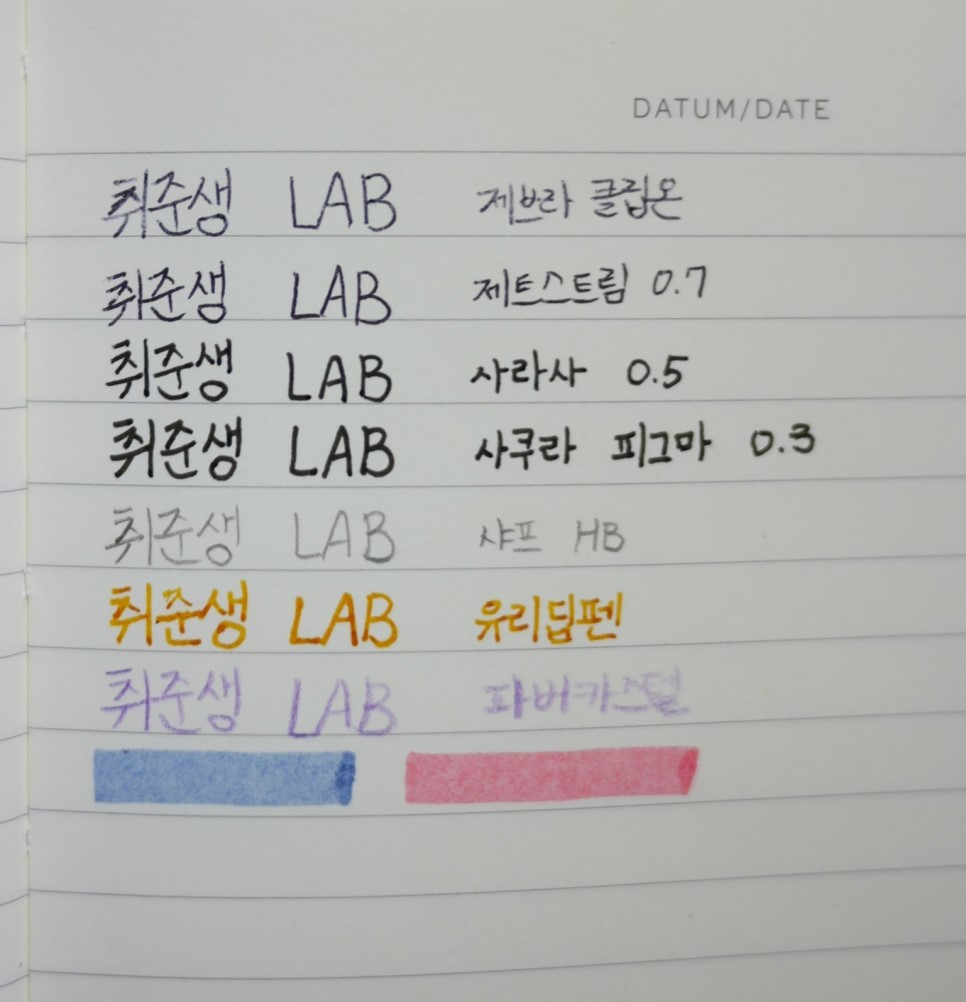 DATUM/DATE
취준생 LAB 제브라 클립온
취준생 LAB 제트스트림 0.7
취준생 LAB 사라사 0.5
취준생 LAB 사쿠라 피그마 0.3
취준생 LAB 샤프 HB
취준생 LAB 유리딥펜
취준생 LAB 파버카스텔